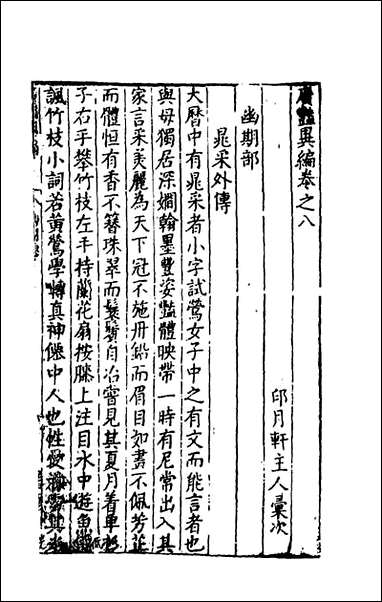 廣豔異編卷之八
印月軒主人彙次
幽期部
晁采外傳
大曆中有晁采者小字試鶯女子中之有文而能言者也
與母獨居深嫺翰墨豐姿豔體映帶一時有尼常出入其
家言采美麗為天下冠不施丹鉛而眉目如畫不佩芳芷
而體恒有香不簪珠翠而鬟鬢自冶嘗見其夏月着單衫
子右手攀竹枝左手持蘭花扇按膝上注目水中遊魚
諷竹枝小詞若黃鶯學囀真神僊中人也性愛